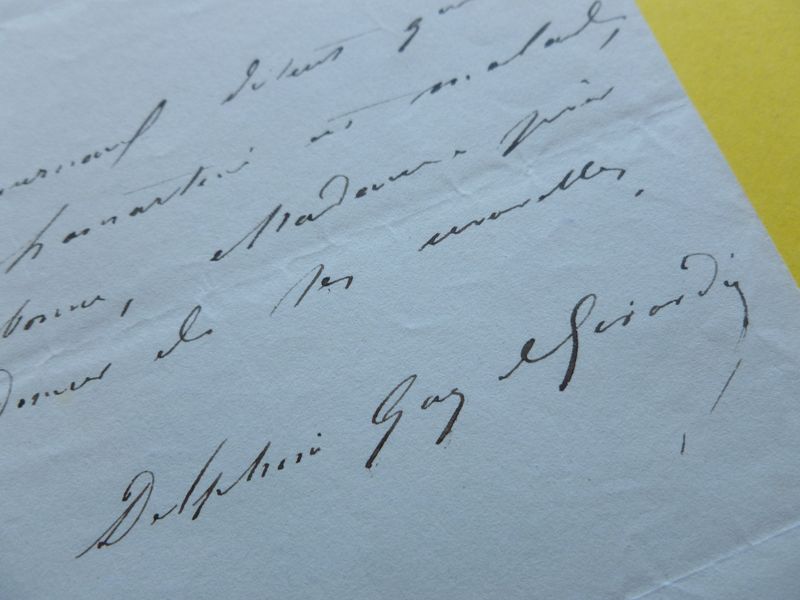 journaux disent que
Lamartine est malade,
bonne, Madame, pour
donner de ses nouvelles.
Delphine Gay de Girardin